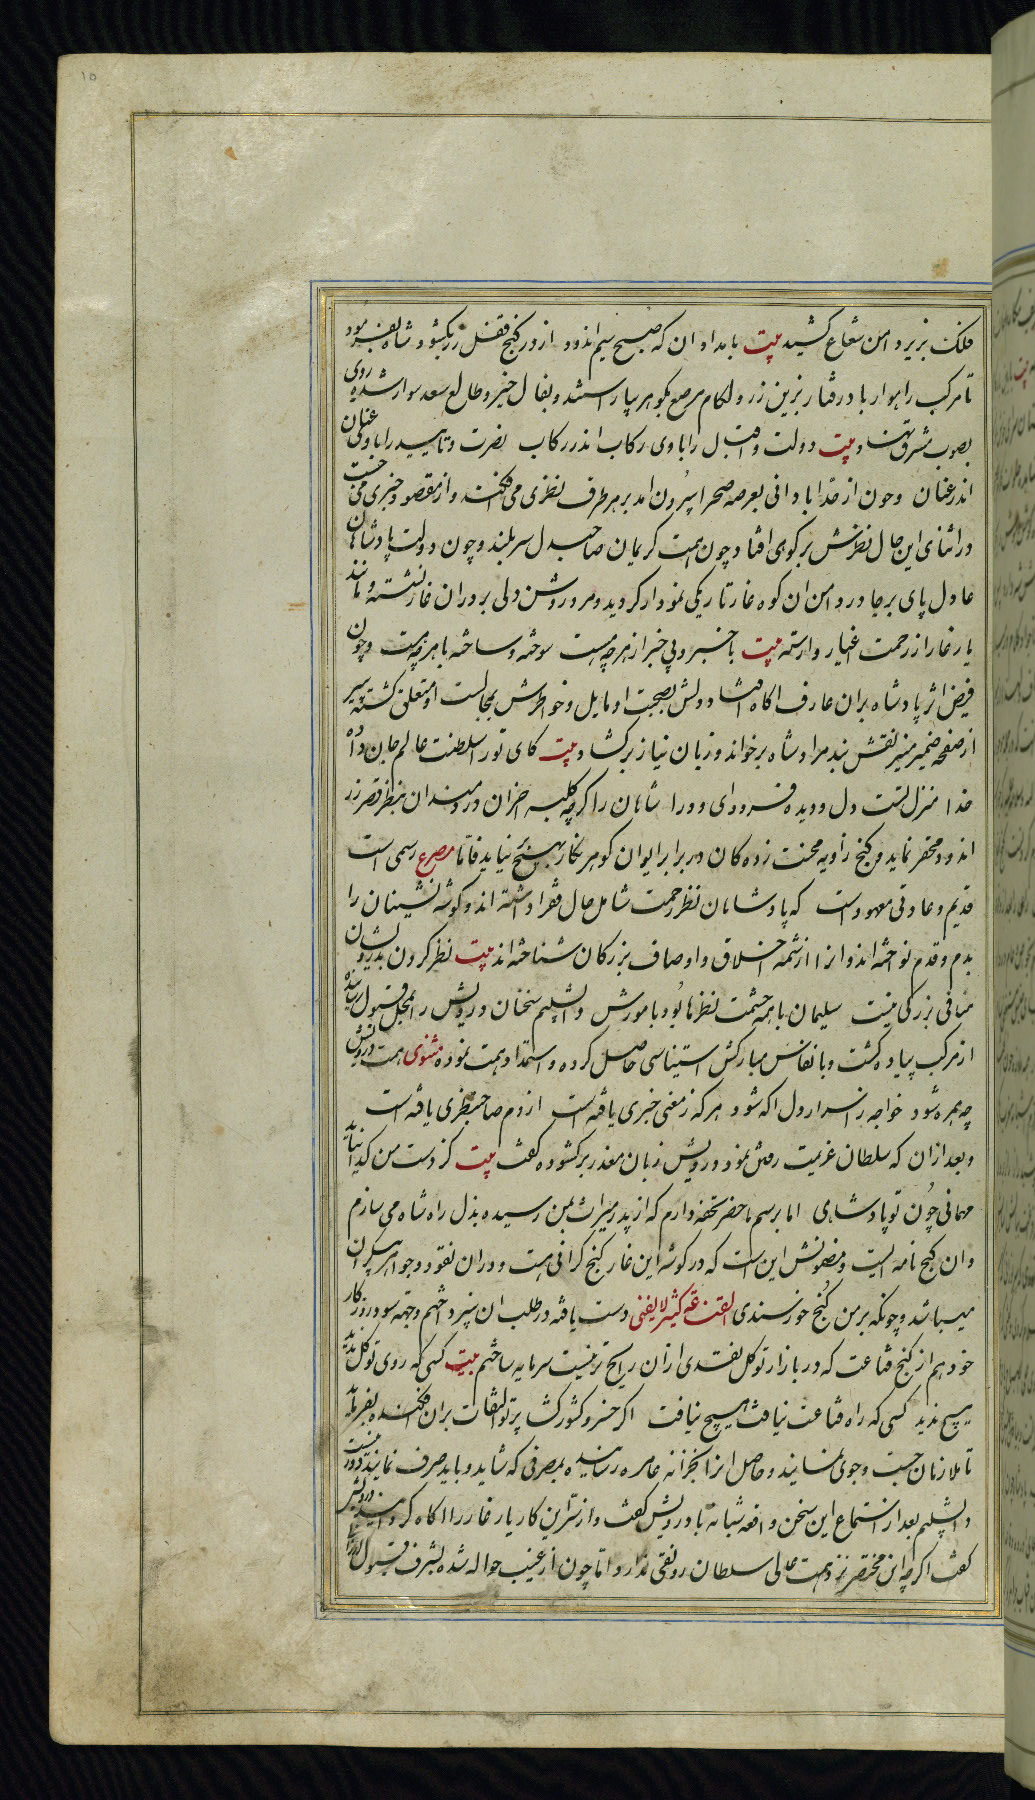 ۱۵
فلک بزیر دامن شعاع کشید بیت بامدادان که صبح سیم اندود از در گنج قفل زر بگشود شاه بفرمود
تا مرکب راهوار باد رفتار بزین زر و لگام مرصع بگوهر بیاراستند و بفال خیر و طالع سعد سوار شده روی
بصوب مشرق نهاد بیت دولت و اقبال را با وی رکاب اندر رکاب نصرت و تایید را با وی عنان
اندر عنان و چون از حد آبادانی بعرصه صحرا بیرون آمد بهر طرف نظری می افکند و از مقصود خبری می جست
در اثنای این حال نظرش بر کوهی افتاد چون همت کریمان صاحبدل سربلند و چون دولت پادشاهان
عادل پای برجا و در دامن آن کوه غار تاریکی نمودار گردید و مرد روشن دلی بر در آن غار نشسته و مانند
یار غار از زحمت اغیار وارسته بیت با خبر و بی خبر از هر چه هست سوخته و ساخته با هر چه هست و چون
فیض اثر پادشاه بر آن عارف آگاه افتاد دلش بصحبت او مایل و خواطرش بمجالست او متعلق گشته پیر
از صفحه ضمیر منیر نقش بند مراد شاه برخواند و زبان نیاز برگشاد بیت کای تورا سلطنت عالم جان داده
خدا منزل تست دل و دیده فرود آی و درا شاهان را اگر چه کلبه احزان دردمندان بنظر قصر زر
اندود محقر نماید و کنج زاویه محنت زده کان در برابر ایوان گوهر نگار بهیچ نیاید فاما مصرع رسمی است
قدیم و عادتی معهود است که پادشاهان نظر رحمت شامل حال فقرا داشته اند و گوشه نشینان را
بدم و قدم نواخته اند و آنرا از تتمه اخلاق و اوصاف بزرگان شناخته اند بیت نظر کردن بدرویشان
منافی بزرگی نیست سلیمان با همه حشمت نظرها بود با مورش دابشلیم سخنان درویش را بمحل قبول رسانده
از مرکب پیاده گشت و بانفاس مبارکش استیناسی حاصل کرده و استمداد همت نموده مثنوی همت درویش
چو همره شود خواجه ز اسرار دل آگه شود هر که ز معنی خبری یافته است از دم صاحبنظری یافته است
و بعد از آن که سلطان عزیمت رفتن نمود درویش زبان معذرت برگشوده گفت بیت کز دست من گدا نیاید
مهمانی چون تو پادشاهی اما برسم ماحضر تحفه دارم که از پدر میراث بمن رسیده بذل راه شاه می سازم
و آن گنج نامه ایست و مضمونش این است که در گوشه این غار گنج گرانی هست و در آن نقود و جواهر بیکران
میباشد و چونکه بر من گنج خورسندی القناعة کنز لا یفنی دست یافته در طلب آن نپرداختم و جهة سود روزگار
خود هم از گنج قناعت که در بازار توکل نقدی از آن رایج تر نیست سرمایه ساختم بیت کسی که روی توکل ندید
هیچ ندید کسی که راه قناعت نیافت هیچ نیافت اگر خسرو کشور گشا پرتو التفات بر آن افکنده بفرماید
تا ملازمان جست و جوی نمایند و حاصل آنرا بخزانه عامره رسانیده بمصرفی که شاید و باید صرف نمایند دور نیست
دابشلیم بعد از استماع این سخن واقعه شبانه با درویش گفت و از سر این کار یار غار را آگاه کرده درویش
گفت اگر چه این مختصر نزد همت عالی سلطان رونقی ندارد اما چون از غیب حواله شده بشرف قبول